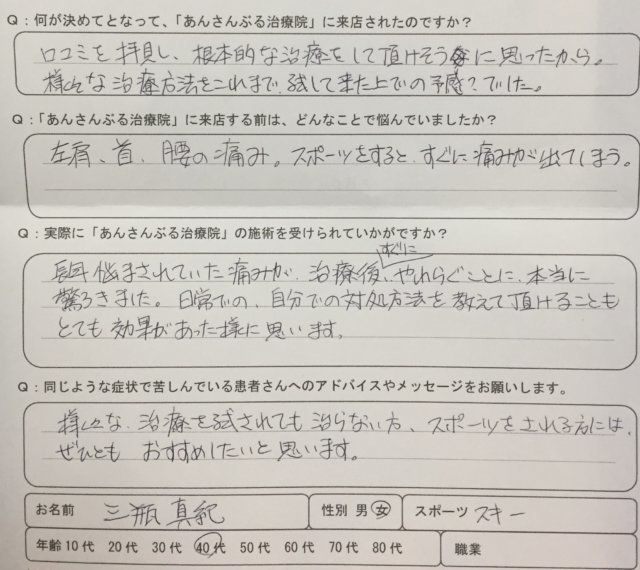 Q：何が決めてとなって、「あんさんぶる治療院」に来店されたのですか？
口コミを拝見し、根本的な治療をして頂けそうに思ったから。
様々な治療方法をこれまで試して来た上での予感？でした。
Q：「あんさんぶる治療院」に来店する前は、どんなことで悩んでいましたか？
左肩、首、腰の痛み。スポーツをすると、すぐに痛みが出てしまう。
Q：実際に「あんさんぶる治療院」の施術を受けられていかがですか？
長年悩まされていた痛みが、治療後、すぐにやわらぐことに、本当に
驚ろきました。日常での、自分での対処方法を教えて頂けることも
とても効果があった様に思います。
Q：同じような症状で苦しんでいる患者さんへのアドバイスやメッセージをお願いします。
様々な治療を試されても治らない方、スポーツをされる方には、
ぜひとも おすすめしたいと思います。
お名前 三瓶 真紀 性別 男 女 スポーツ スキー
年齢 10代 20代 30代 40代 50代 60代 70代 80代 職業